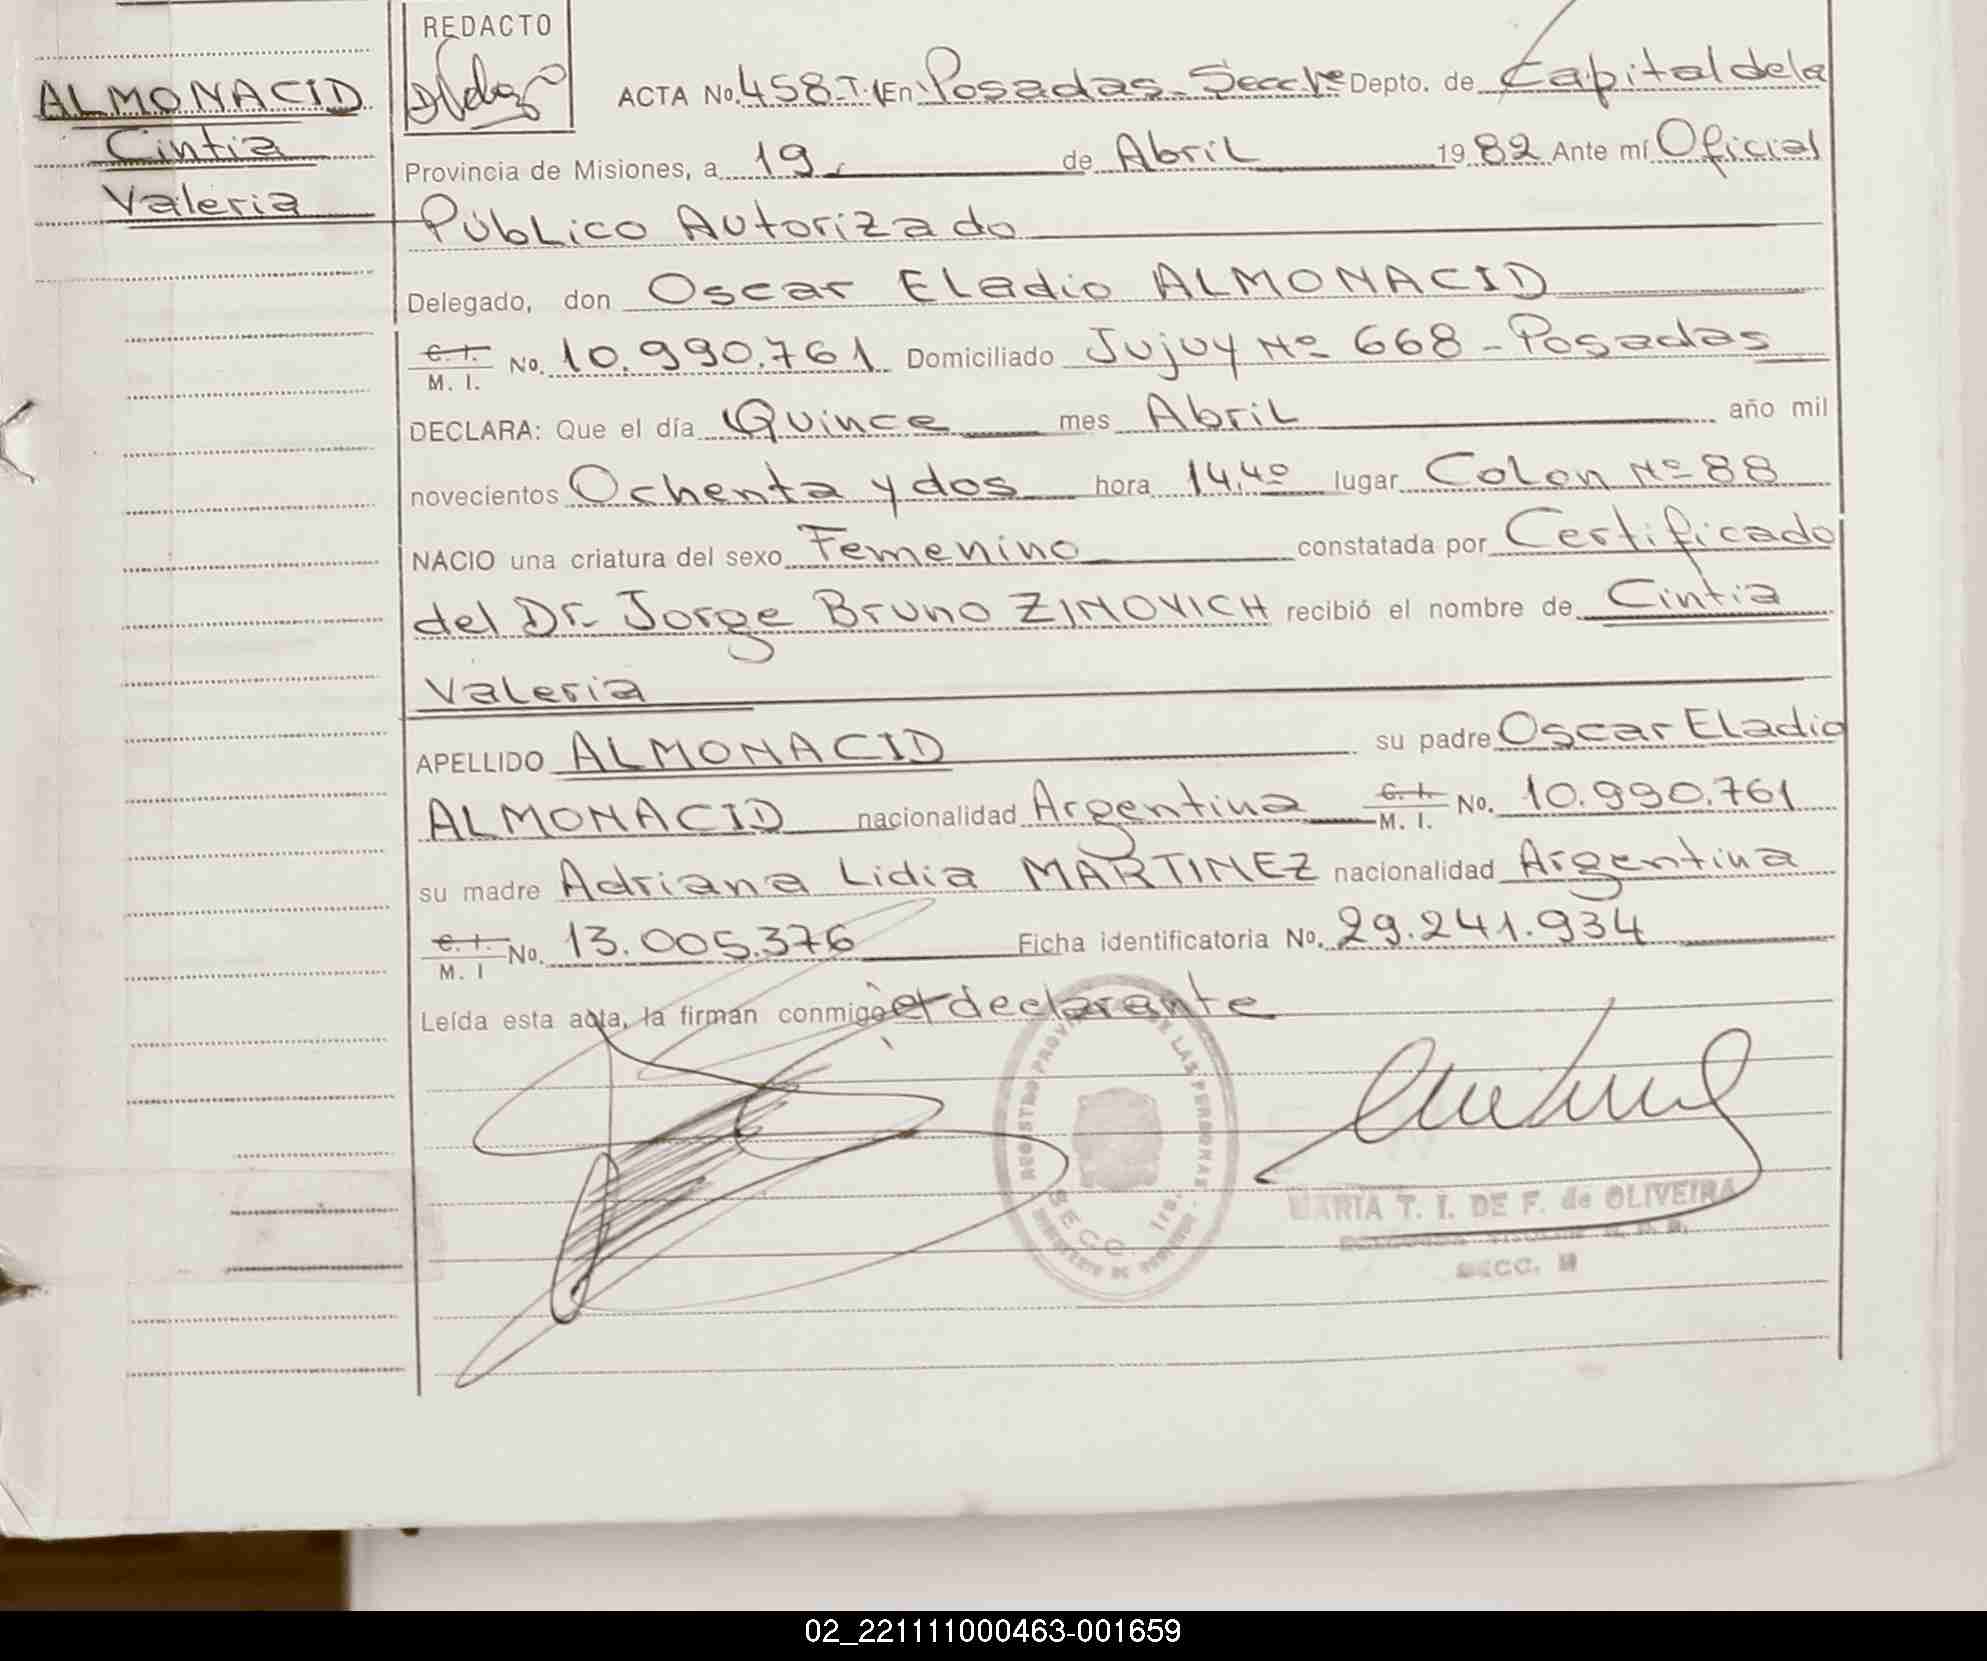 REDACTO
ALMONACID
Cintia
Valeria
ACTA No. 458-T. I En Posadas - Secc 1ª Depto. de Capital de la
Provincia de Misiones, a 19 de Abril 1982 Ante mí Oficial
Público Autorizado
Delegado, don Oscar Eladio ALMONACID
C. I. M. I. No. 10.990.761 Domiciliado Jujuy Nº 668 - Posadas
DECLARA: Que el día Quince mes Abril año mil
novecientos Ochenta y dos hora 14,40 lugar Colon Nº 88
NACIO una criatura del sexo Femenino constatada por Certificado
del Dr. Jorge Bruno ZINOVICH recibió el nombre de Cintia
Valeria
APELLIDO ALMONACID su padre Oscar Eladio
ALMONACID nacionalidad Argentina C. I. M. I. No. 10.990.761
su madre Adriana Lidia MARTINEZ nacionalidad Argentina
C. I. M. I No. 13.005.376 Ficha identificatoria No. 29.241.934
Leída esta acta, la firman conmigo el declarante
REGISTRO PROVINCIAL DE LAS PERSONAS
SECC. 1ra.
MARIA T. I. DE F. de OLIVEIRA
SECC.
02_221111000463-001659